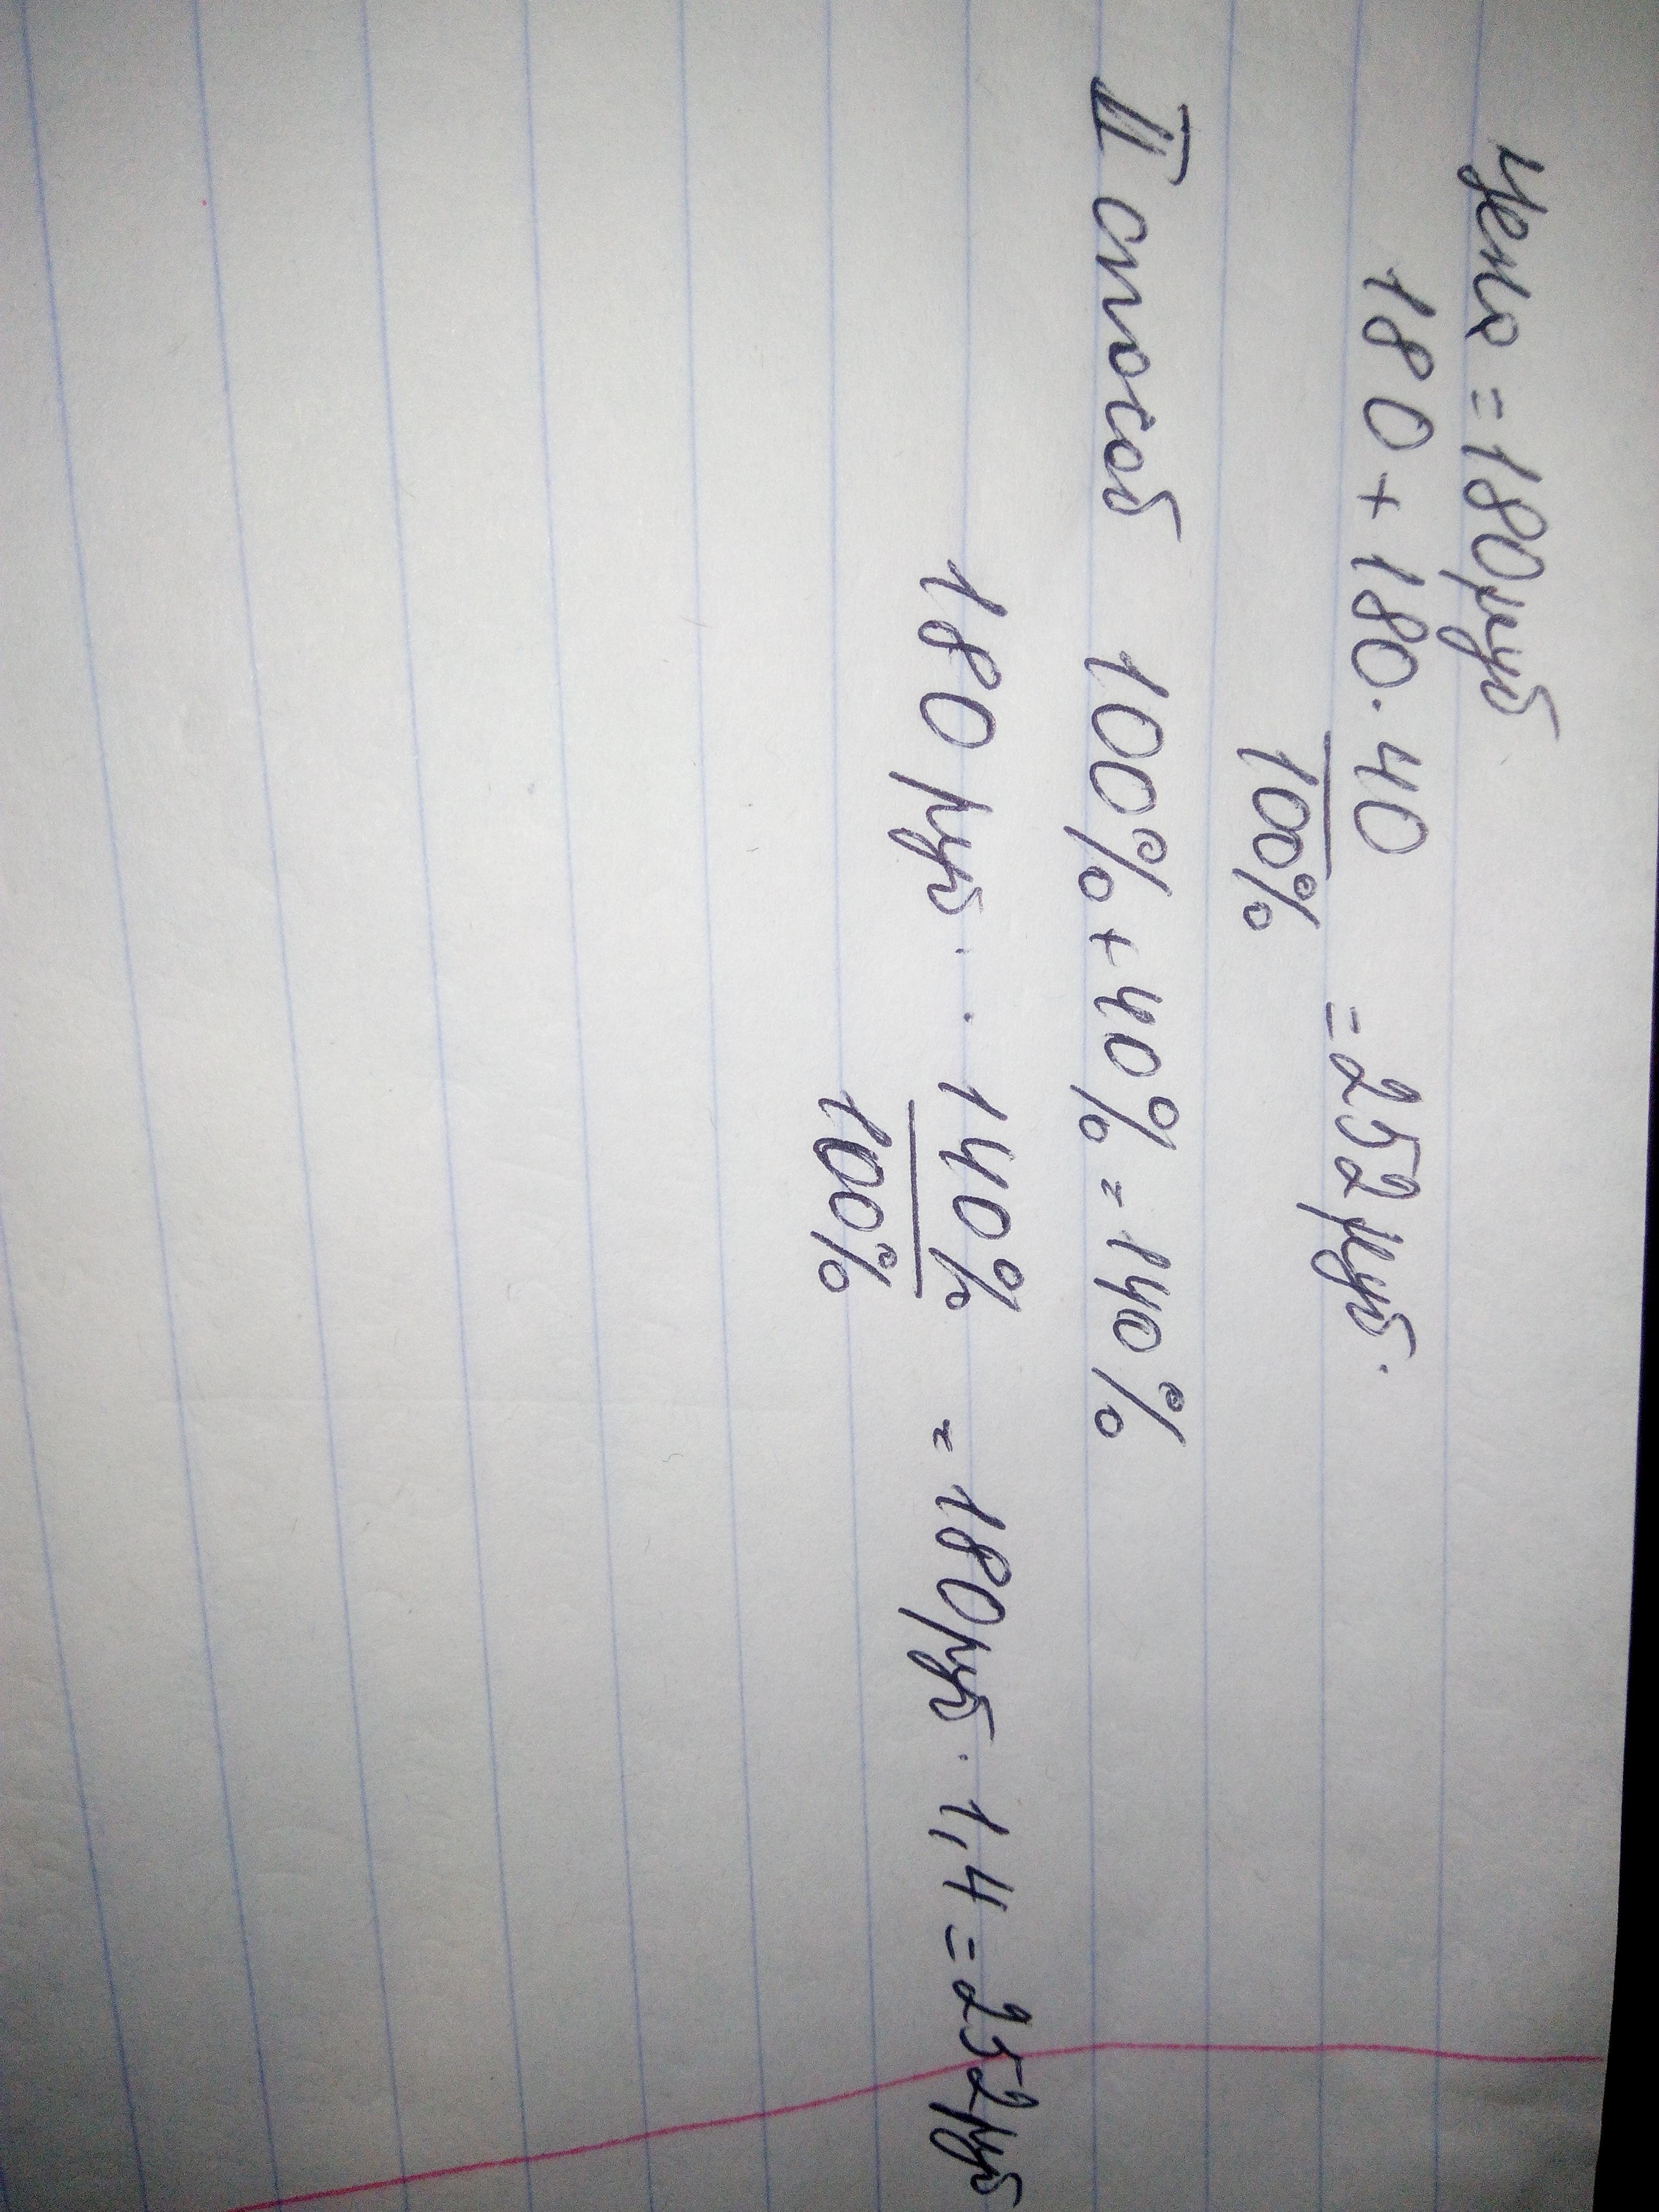 Цена = 180руб
180 + 180 · 40 = 252руб.
100%
II способ 100% + 40% = 140%
180 руб. · 140% = 180руб · 1,4 = 252руб
100%